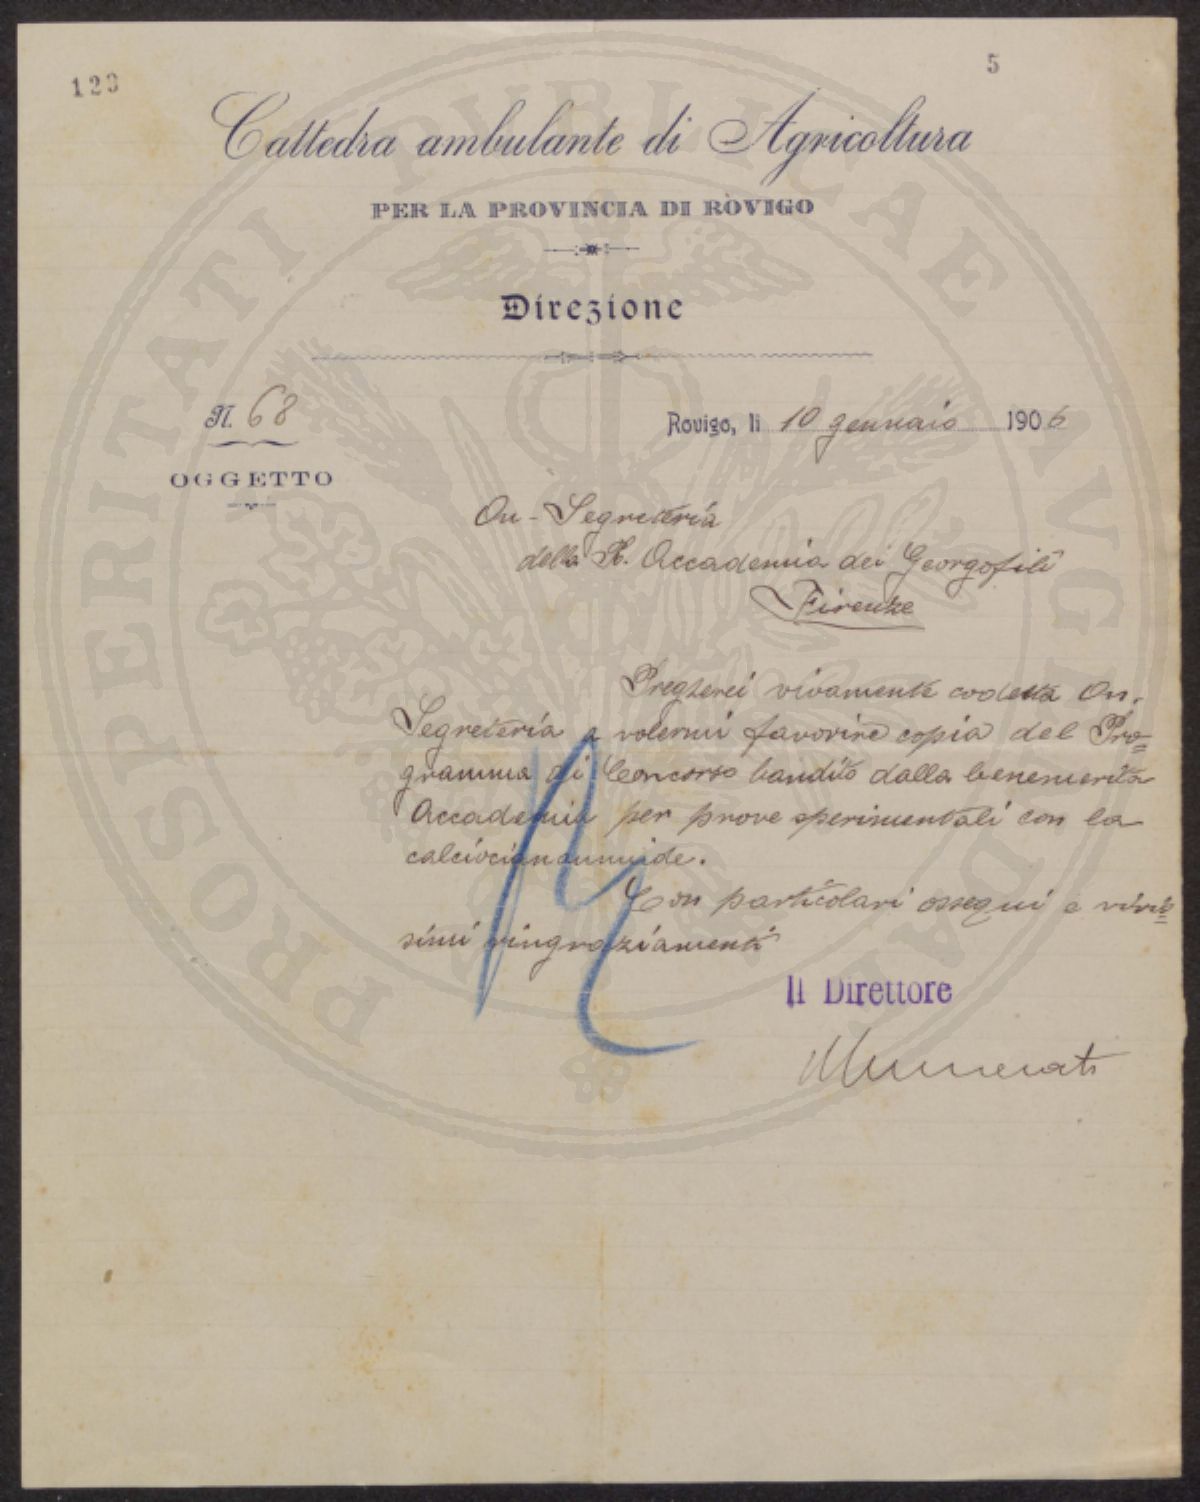 123
5
Cattedra ambulante di Agricoltura
PER LA PROVINCIA DI ROVIGO
Direzione
N. 68
Rovigo, li 10 gennaio 1906
OGGETTO
On - Segreteria
della R. Accademia dei Georgofili
Firenze
Pregherei vivamente codesta On.
Segreteria a volermi favorire copia del Pro=
gramma di Concorso bandito dalla benemerita
Accademia per prove sperimentali con la
calciocianammide.
Con particolari ossequi e vivis=
simi ringraziamenti
Il Direttore
Munerati
PROSPERITATI PVBLICAE AVGENDAE